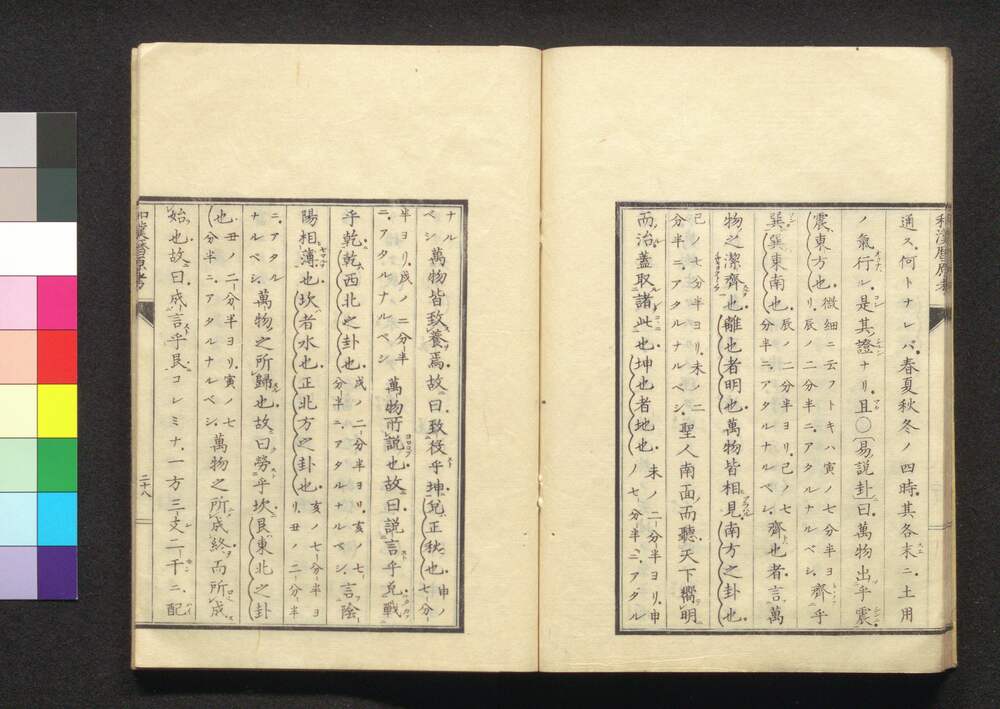 和漢暦原考
通ス。何トナレバ。春夏秋冬ノ四時。其各末ニ。土用
ノ氣行ル。是其證ナリ。且〇易説卦曰萬物出乎震
震東方也。微細ニ云フトキハ寅ノ七分半ヨ
リ。辰ノ二分半ニ。アタルナルベシ。齊乎
巽巽東南也。辰ノ二分半ヨリ。巳ノ七
分半ニ。アタルナルベシ。齊也者。言萬
物之潔齊也離也者明也萬物皆相見南方之卦也。
巳ノ七分半ヨリ。未ノ二
分半ニ。アタルナルベシ。聖人南面而聽天下嚮明
而治蓋取諸此也坤也者地也。未ノ二分半ヨリ。申
ノ七分半ニ。アタル
ナル
ベシ萬物皆致養焉故曰。致役乎坤兌正秋也。申ノ
七分
半ヨリ。戌ノ二分半
ニ。アタルナルベシ萬物所説也故曰説言乎兌戰
乎乾乾西北之卦也戌ノ二分半ヨリ。亥ノ七
分半ニ。アタルナルベシ。言陰
陽相薄也坎者水也正北方之卦也亥ノ七分半ヨ
リ。丑ノ二分半
ニ。アタル
ナルベシ。萬物之所歸也故曰勞乎坎艮東北之卦
也丑ノ二分半ヨリ。寅ノ七
分半ニ。アタルナルベシ。萬物之所成終而所成
始也。故曰。成言乎艮。コレミナ。一方三支二干ニ。配
和漢暦原考
二十八